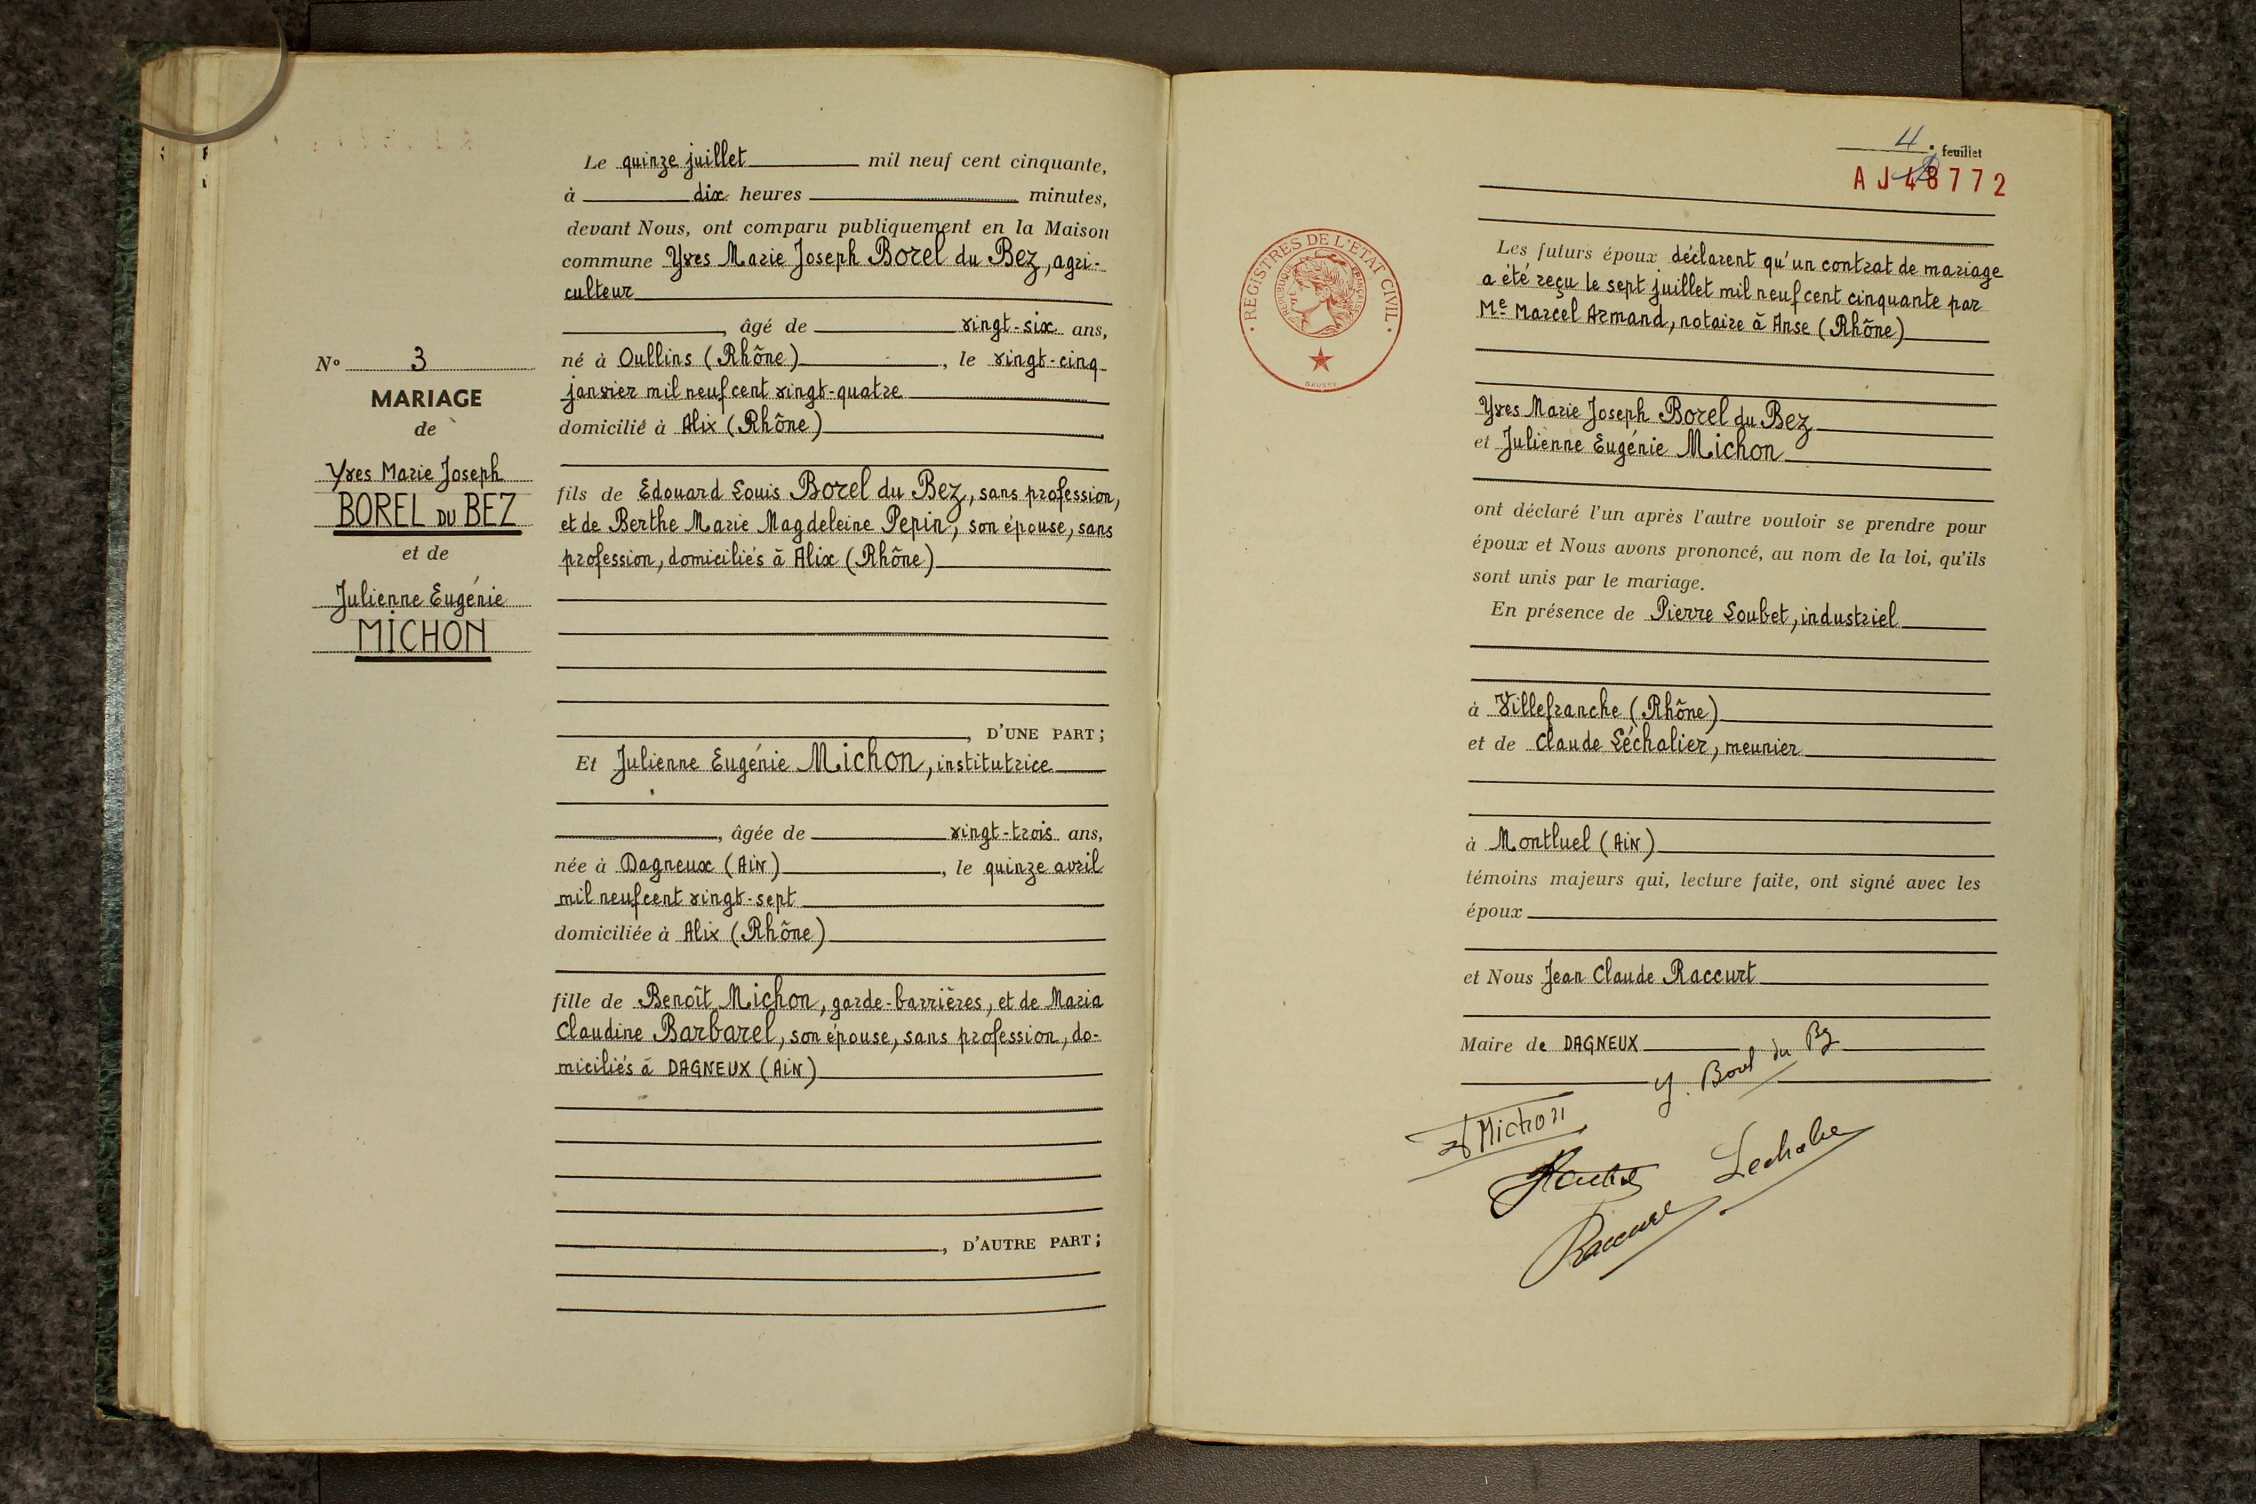 Le quinze juillet mil neuf cent cinquante,
à dix heures minutes,
devant Nous, ont comparu publiquement en la Maison
commune Yves Marie Joseph Borel du Bez, agri-
culteur
, âgé de vingt-six ans,
né à Oullins (Rhône), le vingt-cinq
janvier mil neuf cent vingt-quatre
domicilié à Alix (Rhône)
fils de Edouard Louis Borel du Bez, sans profession,
et de Berthe Marie Magdeleine Pepin, son épouse, sans
profession, domiciliés à Alix (Rhône)
, D'UNE PART;
Et Julienne Eugénie Michon, institutrice
, âgée de vingt-trois ans,
née à Dagneux (Ain), le quinze avril
mil neuf cent vingt-sept
domiciliée à Alix (Rhône)
fille de Benoît Michon, garde-barrières, et de Maria
Claudine Barbarel, son épouse, sans profession, do-
miciliés à DAGNEUX (Ain)
, D'AUTRE PART;
N° 3
MARIAGE
de
Yves Marie Joseph
BOREL DU BEZ
et de
Julienne Eugénie
MICHON
4 e feuillet
AJ48772
REGISTRES DE L'ETAT CIVIL
REPUBLIQUE FRANÇAISE
Les futurs époux déclarent qu'un contrat de mariage
a été reçu le sept juillet mil neuf cent cinquante par
Me Marcel Armand, notaire à Anse (Rhône)
Yves Marie Joseph Borel du Bez
et Julienne Eugénie Michon
ont déclaré l'un après l'autre vouloir se prendre pour
époux et Nous avons prononcé, au nom de la loi, qu'ils
sont unis par le mariage.
En présence de Pierre Loubet, industriel
à Villefranche (Rhône)
et de Claude Léchalier, meunier
à Montluel (Ain)
témoins majeurs qui, lecture faite, ont signé avec les
époux
et Nous Jean Claude Raccurt
Maire de DAGNEUX
Y. Borel du Bz
Michon
Raccurt